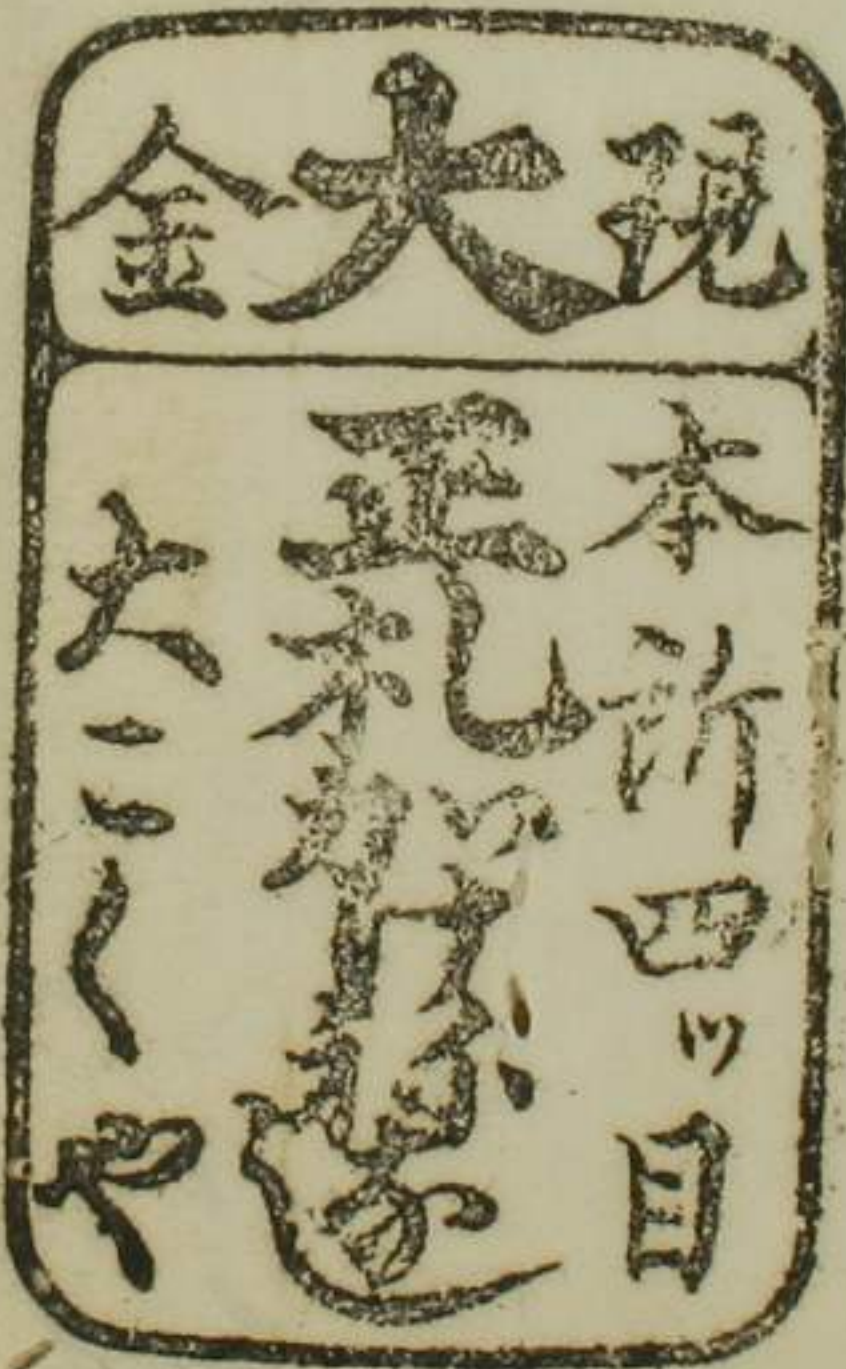 現
大
金
本所四ッ目
正札
大こくや